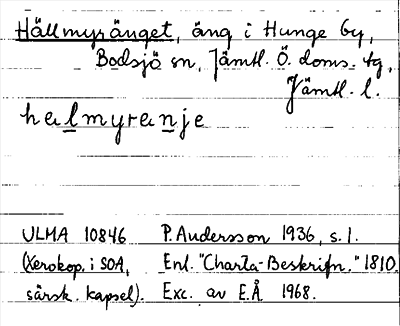 Hällmyränget, äng i Hunge by,
Bodsjö sn, Jämtl. Ö. doms. tg,
Jämtl. l.
helmyrenje
ULMA 10846 P. Andersson 1936, s. 1.
(Xerokop. i SOA, Enl. "Charta-Beskrifn." 1810.
särsk. kapsel). Exc. av E.Å 1968.